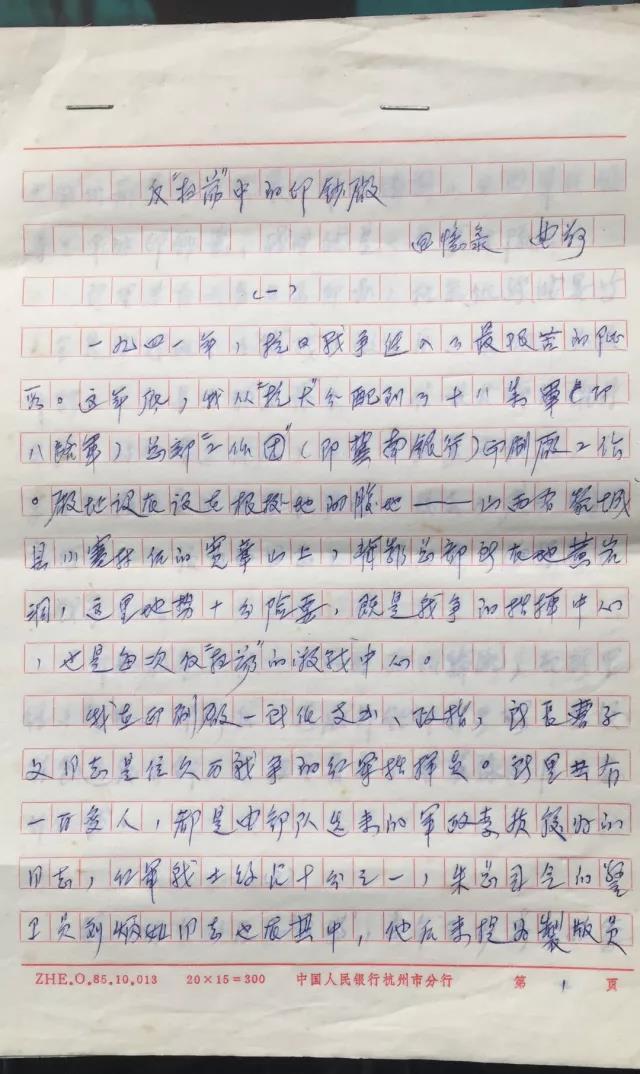 反“扫荡”中的印钞厂
回憶录 典
(一)
一九四一年,抗日战争进入了最艰苦的阶
段。这年底,我从“抗大”分配到了十八集军(即
八路军)总部“工作团”(即冀南银行)印刷厂工作
。厂址设在设在根据地的腹地——山西省黎城
县小寨村伍的宽华山上,靠总部所在地黄岩
洞,这里地势十分险要,既是战争的指挥中心
,也是每次反“扫荡”的激战中心。
我在印刷厂一所任支书、政指,所长曹子
文同志是位久历战争的红军指挥员。所里共有
一百多人,都是由部队选来的军政素质较好的
同志,红军战士约占十分之一,朱总司令的警
卫员刘炳同志也在其中,他后来提为製版员
ZHE.O.85.10.013 20×15=300 中国人民银行杭州市分行 第 1 页